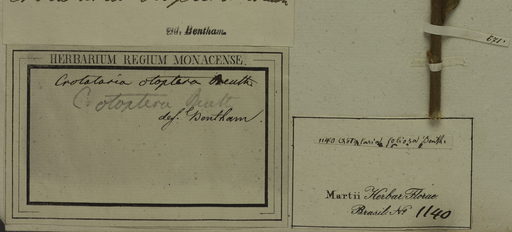 det. Bentham.
HERBARIUM REGIUM MONACENSE.
Crotalaria stoptera Benth.
C. stoptera Benth
det. Bentham.
1140 foliosa Benth.
Martii Herbar. Florae
Brasil. No 1140